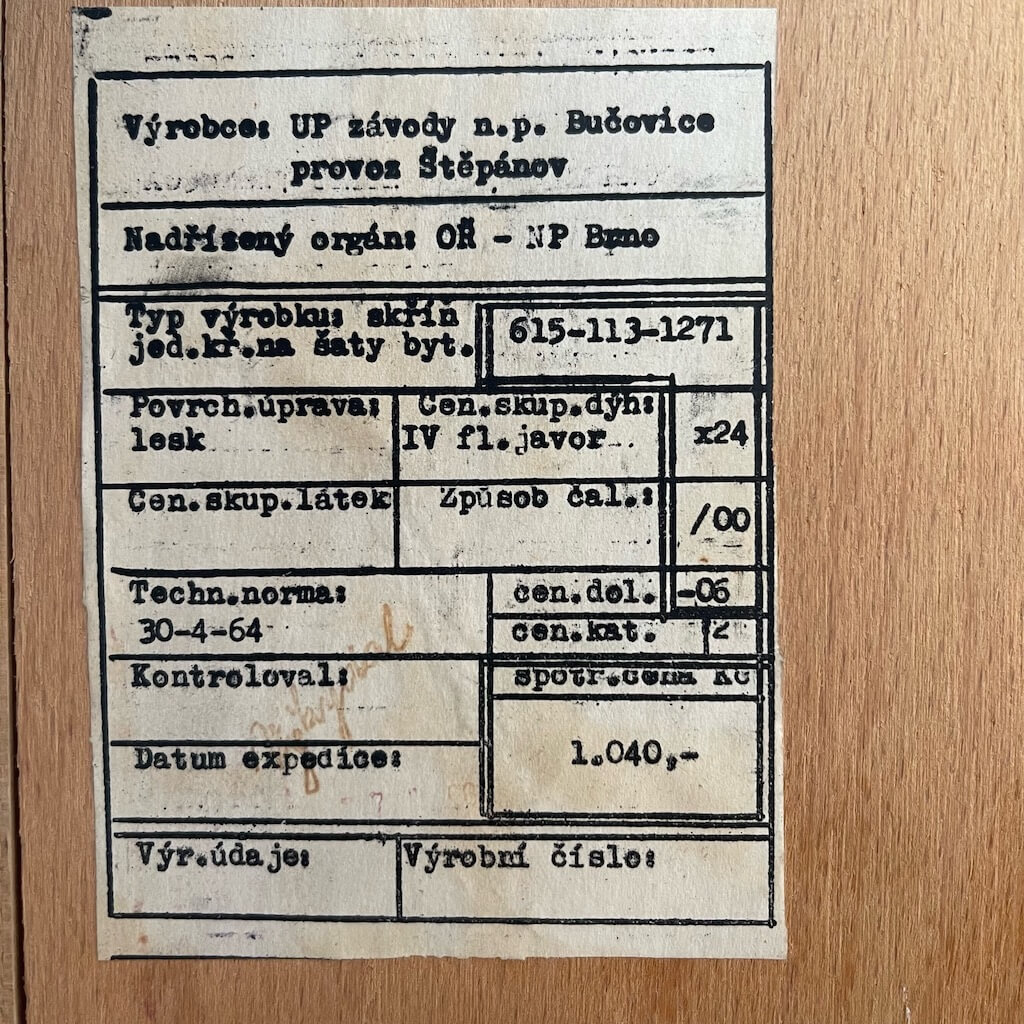 Výrobce: UP závody n.p. Bučovice
provoz Štěpánov
Nadřízený orgán: OŘ - NP Brno
Typ výrobku: skříň
jed.kř.na šaty byt.
615-113-1271
Povrch.úprava:
lesk
Cen.skup.dýh:
IV fl.javor
x24
Cen.skup.látek
Způsob čal.:
/00
Techn.norma:
30-4-64
cen.dol.
-06
cen.kat.
2
Kontroloval:
spotř.cena Kč
1.040,-
Datum expedice:
Výr.údaje:
Výrobní číslo: